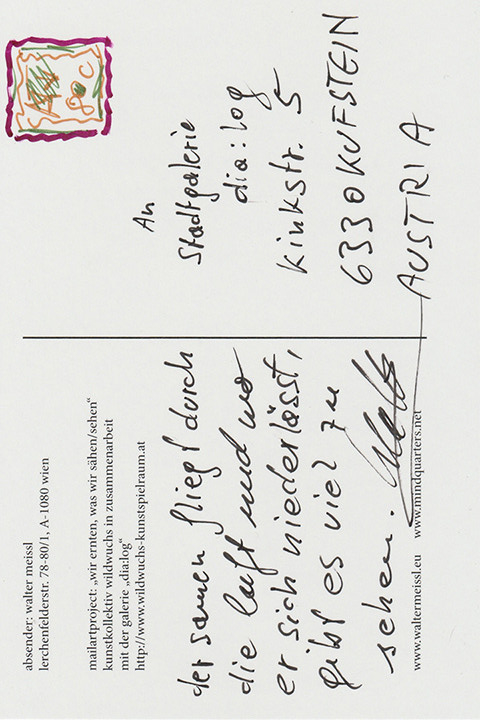 absender: walter meissl
lerchenfelderstr. 78-80/1, A-1080 wien
mailartproject: „wir ernten, was wir sähen/sehen“
kunstkollektiv wildwuchs in zusammenarbeit
mit der galerie „dia:log“
http://www.wildwuchs-kunstspielraum.at
der samen fliegt durch
die luft und wo
er sich niederlässt,
gibt es viel zu
sehen.
www.waltermeissl.eu www.mindquarters.net
An
Stadtgalerie
dia:log
Kinkstr. 5
6330 KUFSTEIN
AUSTRIA